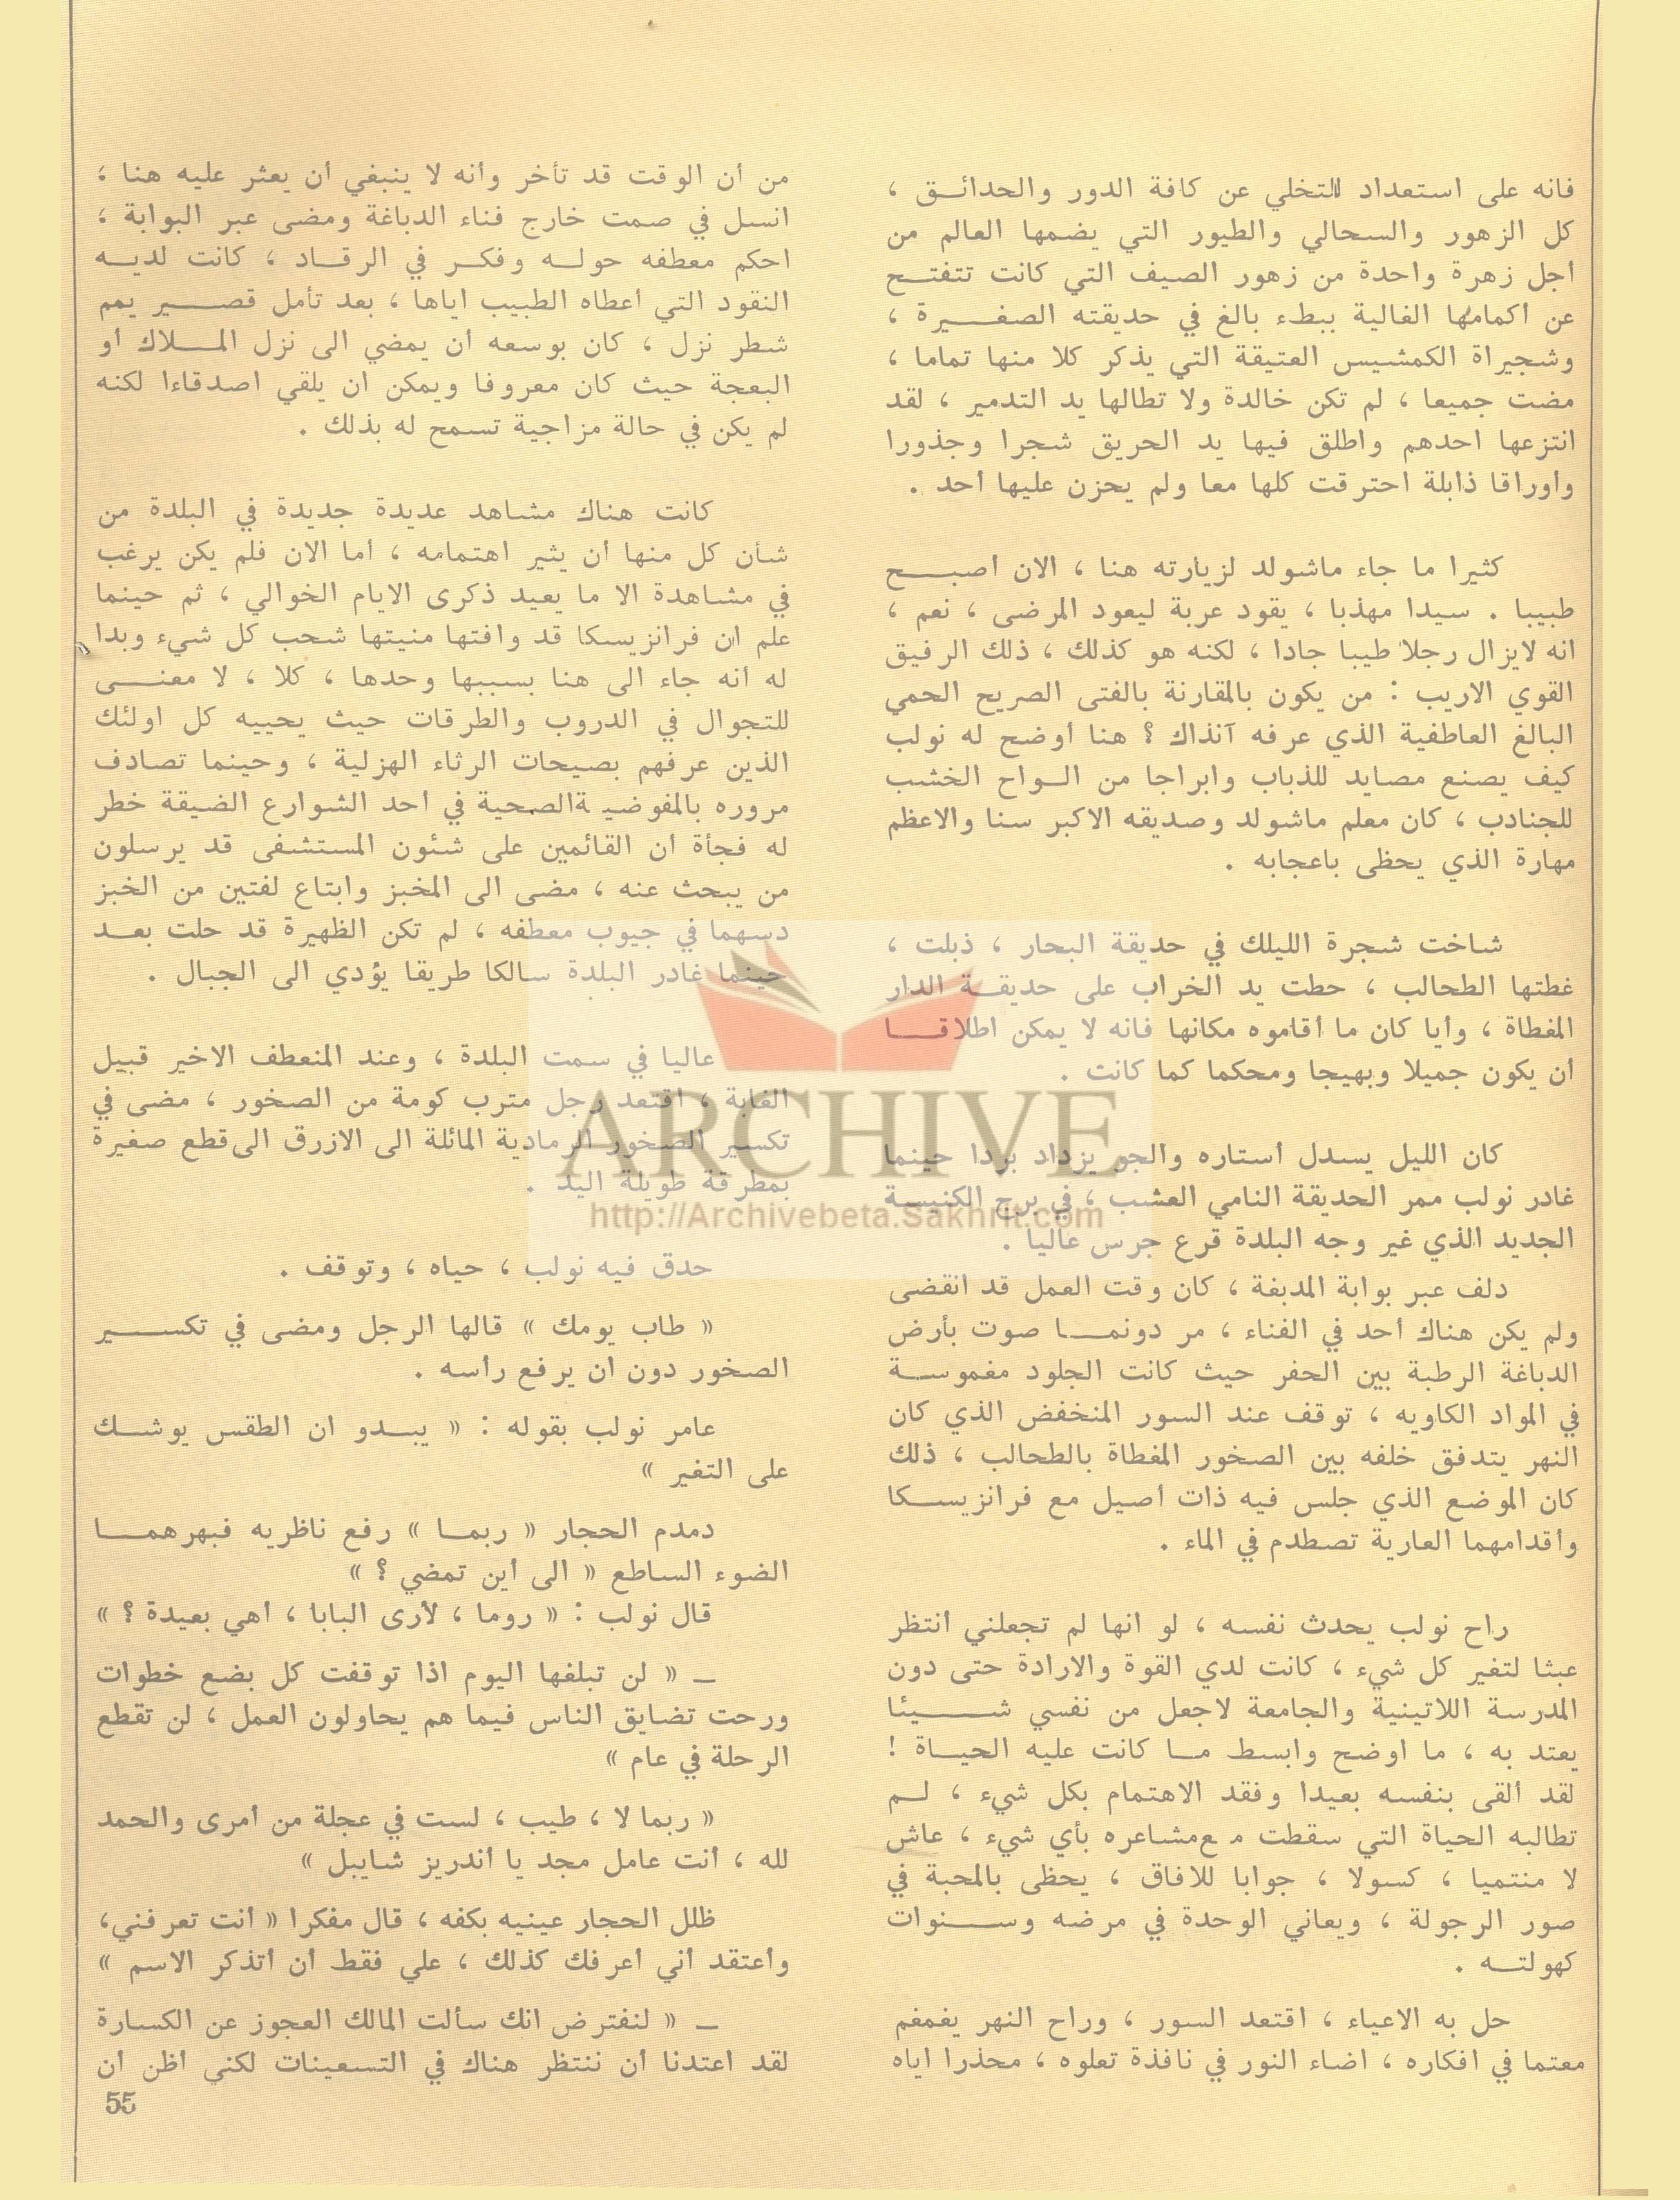 فانه على استعداد للتخلي عن كافة الدور والحدائق ،
كل الزهور والسحالي والطيور التي يضمها العالم من
أجل زهرة واحدة من زهور الصيف التي كانت تتفتح
عن أكمامها الغالية ببطء بالغ في حديقته الصغيرة ،
وشجيراة الكمشيس العتيقة التي يذكر كلا منها تماما ،
مضت جميعا ، لم تكن خالدة ولا تطالها يد التدمير ، لقد
انتزعها احدهم واطلق فيها يد الحريق شجرا وجذورا
وأوراقا ذابلة احترقت كلها معا ولم يحزن عليها أحد .
كثيرا ما جاء ماشولد لزيارته هنا ، الان أصبح
طبيبا . سيدا مهذبا ، يقود عربة ليعود المرضى ، نعم ،
انه لايزال رجلا طيبا جادا ، لكنه هو كذلك ، ذلك الرفيق
القوي الاريب : من يكون بالمقارنة بالفتى الصريح الحمي
البالغ العاطفية الذي عرفه آنذاك ؟ هنا أوضح له نولب
كيف يصنع مصايد للذباب وابراجا من الواح الخشب
للجنادب ، كان معلم ماشولد وصديقه الاكبر سنا والاعظم
مهارة الذي يحظى باعجابه .
شاخت شجرة الليلك في حديقة البحار ، ذبلت ،
غطتها الطحالب ، حطت يد الخراب على حديقة الدار
المغطاة ، وأيا كان ما أقاموه مكانها فانه لا يمكن اطلاقا
أن يكون جميلا وبهيجا ومحكما كما كانت .
كان الليل يسدل أستاره والجو يزداد بردا حينما
غادر نولب ممر الحديقة النامي العشب ، في برج الكنيسة
الجديد الذي غير وجه البلدة قرع جرس عاليا .
دلف عبر بوابة المدبغة ، كان وقت العمل قد انقضى
ولم يكن هناك أحد في الفناء ، مر دونما صوت بأرض
الدباغة الرطبة بين الحفر حيث كانت الجلود مغموسة
في المواد الكاويه ، توقف عند السور المنخفض الذي كان
النهر يتدفق خلفه بين الصخور المغطاة بالطحالب ، ذلك
كان الموضع الذي جلس فيه ذات أصيل مع فرانزيسكا
وأقدامهما العارية تصطدم في الماء .
راح نولب يحدث نفسه ، لو انها لم تجعلني أنتظر
عبثا لتغير كل شيء ، كانت لدي القوة والارادة حتى دون
المدرسة اللاتينية والجامعة لاجعل من نفسي شيئا
يعتد به ، ما اوضح وابسط ما كانت عليه الحياة !
لقد ألقى بنفسه بعيدا وفقد الاهتمام بكل شيء ، لم
تطالبه الحياة التي سقطت مع مشاعره بأي شيء ، عاش
لا منتميا ، كسولا ، جوابا للافاق ، يحظى بالمحبة في
صور الرجولة ، ويعاني الوحدة في مرضه وسنوات
كهولته .
حل به الاعياء ، اقتعد السور ، وراح النهر يغمغم
معتما في افكاره ، اضاء النور في نافذة تعلوه ، محذرا اياه
من أن الوقت قد تأخر وأنه لا ينبغي أن يعثر عليه هنا ،
انسل في صمت خارج فناء الدباغة ومضى عبر البوابة ،
احكم معطفه حوله وفكر في الرقاد ، كانت لديه
النقود التي أعطاه الطبيب اياها ، بعد تأمل قصير يمم
شطر نزل ، كان بوسعه أن يمضي الى نزل الملاك أو
البعجة حيث كان معروفا ويمكن ان يلقي اصدقاءا لكنه
لم يكن في حالة مزاجية تسمح له بذلك .
كانت هناك مشاهد عديدة جديدة في البلدة من
شأن كل منها أن يثير اهتمامه ، أما الان فلم يكن يرغب
في مشاهدة الا ما يعيد ذكرى الايام الخوالي ، ثم حينما
علم ان فرانزيسكا قد وافتها منيتها شحب كل شيء وبدا
له أنه جاء الى هنا بسببها وحدها ، كلا ، لا معنى
للتجوال في الدروب والطرقات حيث يحييه كل اولئك
الذين عرفهم بصيحات الرثاء الهزلية ، وحينما تصادف
مروره بالمفوضية الصحية في أحد الشوارع الضيقة خطر
له فجأة أن القائمين على شئون المستشفى قد يرسلون
من يبحث عنه ، مضى الى المخبز وابتاع لفتين من الخبز
دسهما في جيوب معطفه ، لم تكن الظهيرة قد حلت بعد
حينما غادر البلدة سالكا طريقا يؤدي الى الجبال .
عاليا في سمت البلدة ، وعند المنعطف الاخير قبيل
الغابة ، اقتعد رجل مترب كومة من الصخور ، مضى في
تكسير الصخور الرمادية المائلة الى الازرق الى قطع صغيرة
بمطرقة طويلة اليد .
حدق فيه نولب ، حياه ، وتوقف .
« طاب يومك » قالها الرجل ومضى في تكسير
الصخور دون ان يرفع رأسه .
عامر نولب بقوله : « يبدو ان الطقس يوشك
على التغير »
دمدم الحجار « ربما » رفع ناظريه فبهرهما
الضوء الساطع « الى أين تمضي ؟ »
قال نولب : « روما ، لأرى البابا ، أهي بعيدة ؟ »
ــ « لن تبلغها اليوم اذا توقفت كل بضع خطوات
ورحت تضايق الناس فيما هم يحاولون العمل ، لن تقطع
الرحلة في عام »
« ربما لا ، طيب ، لست في عجلة من أمرى والحمد
لله ، أنت عامل مجد يا أندريز شايبل »
ظلل الحجار عينيه بكفه ، قال مفكرا « أنت تعرفني،
وأعتقد أني أعرفك كذلك ، علي فقط أن أتذكر الاسم »
ــ « لنفترض انك سألت المالك العجوز عن الكسارة
لقد اعتدنا أن ننتظر هناك في التسعينات لكني أظن أن
55
ARCHIVE
http://Archivebeta.Sakhrit.com